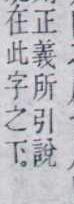 正義所引說
在此字之下。